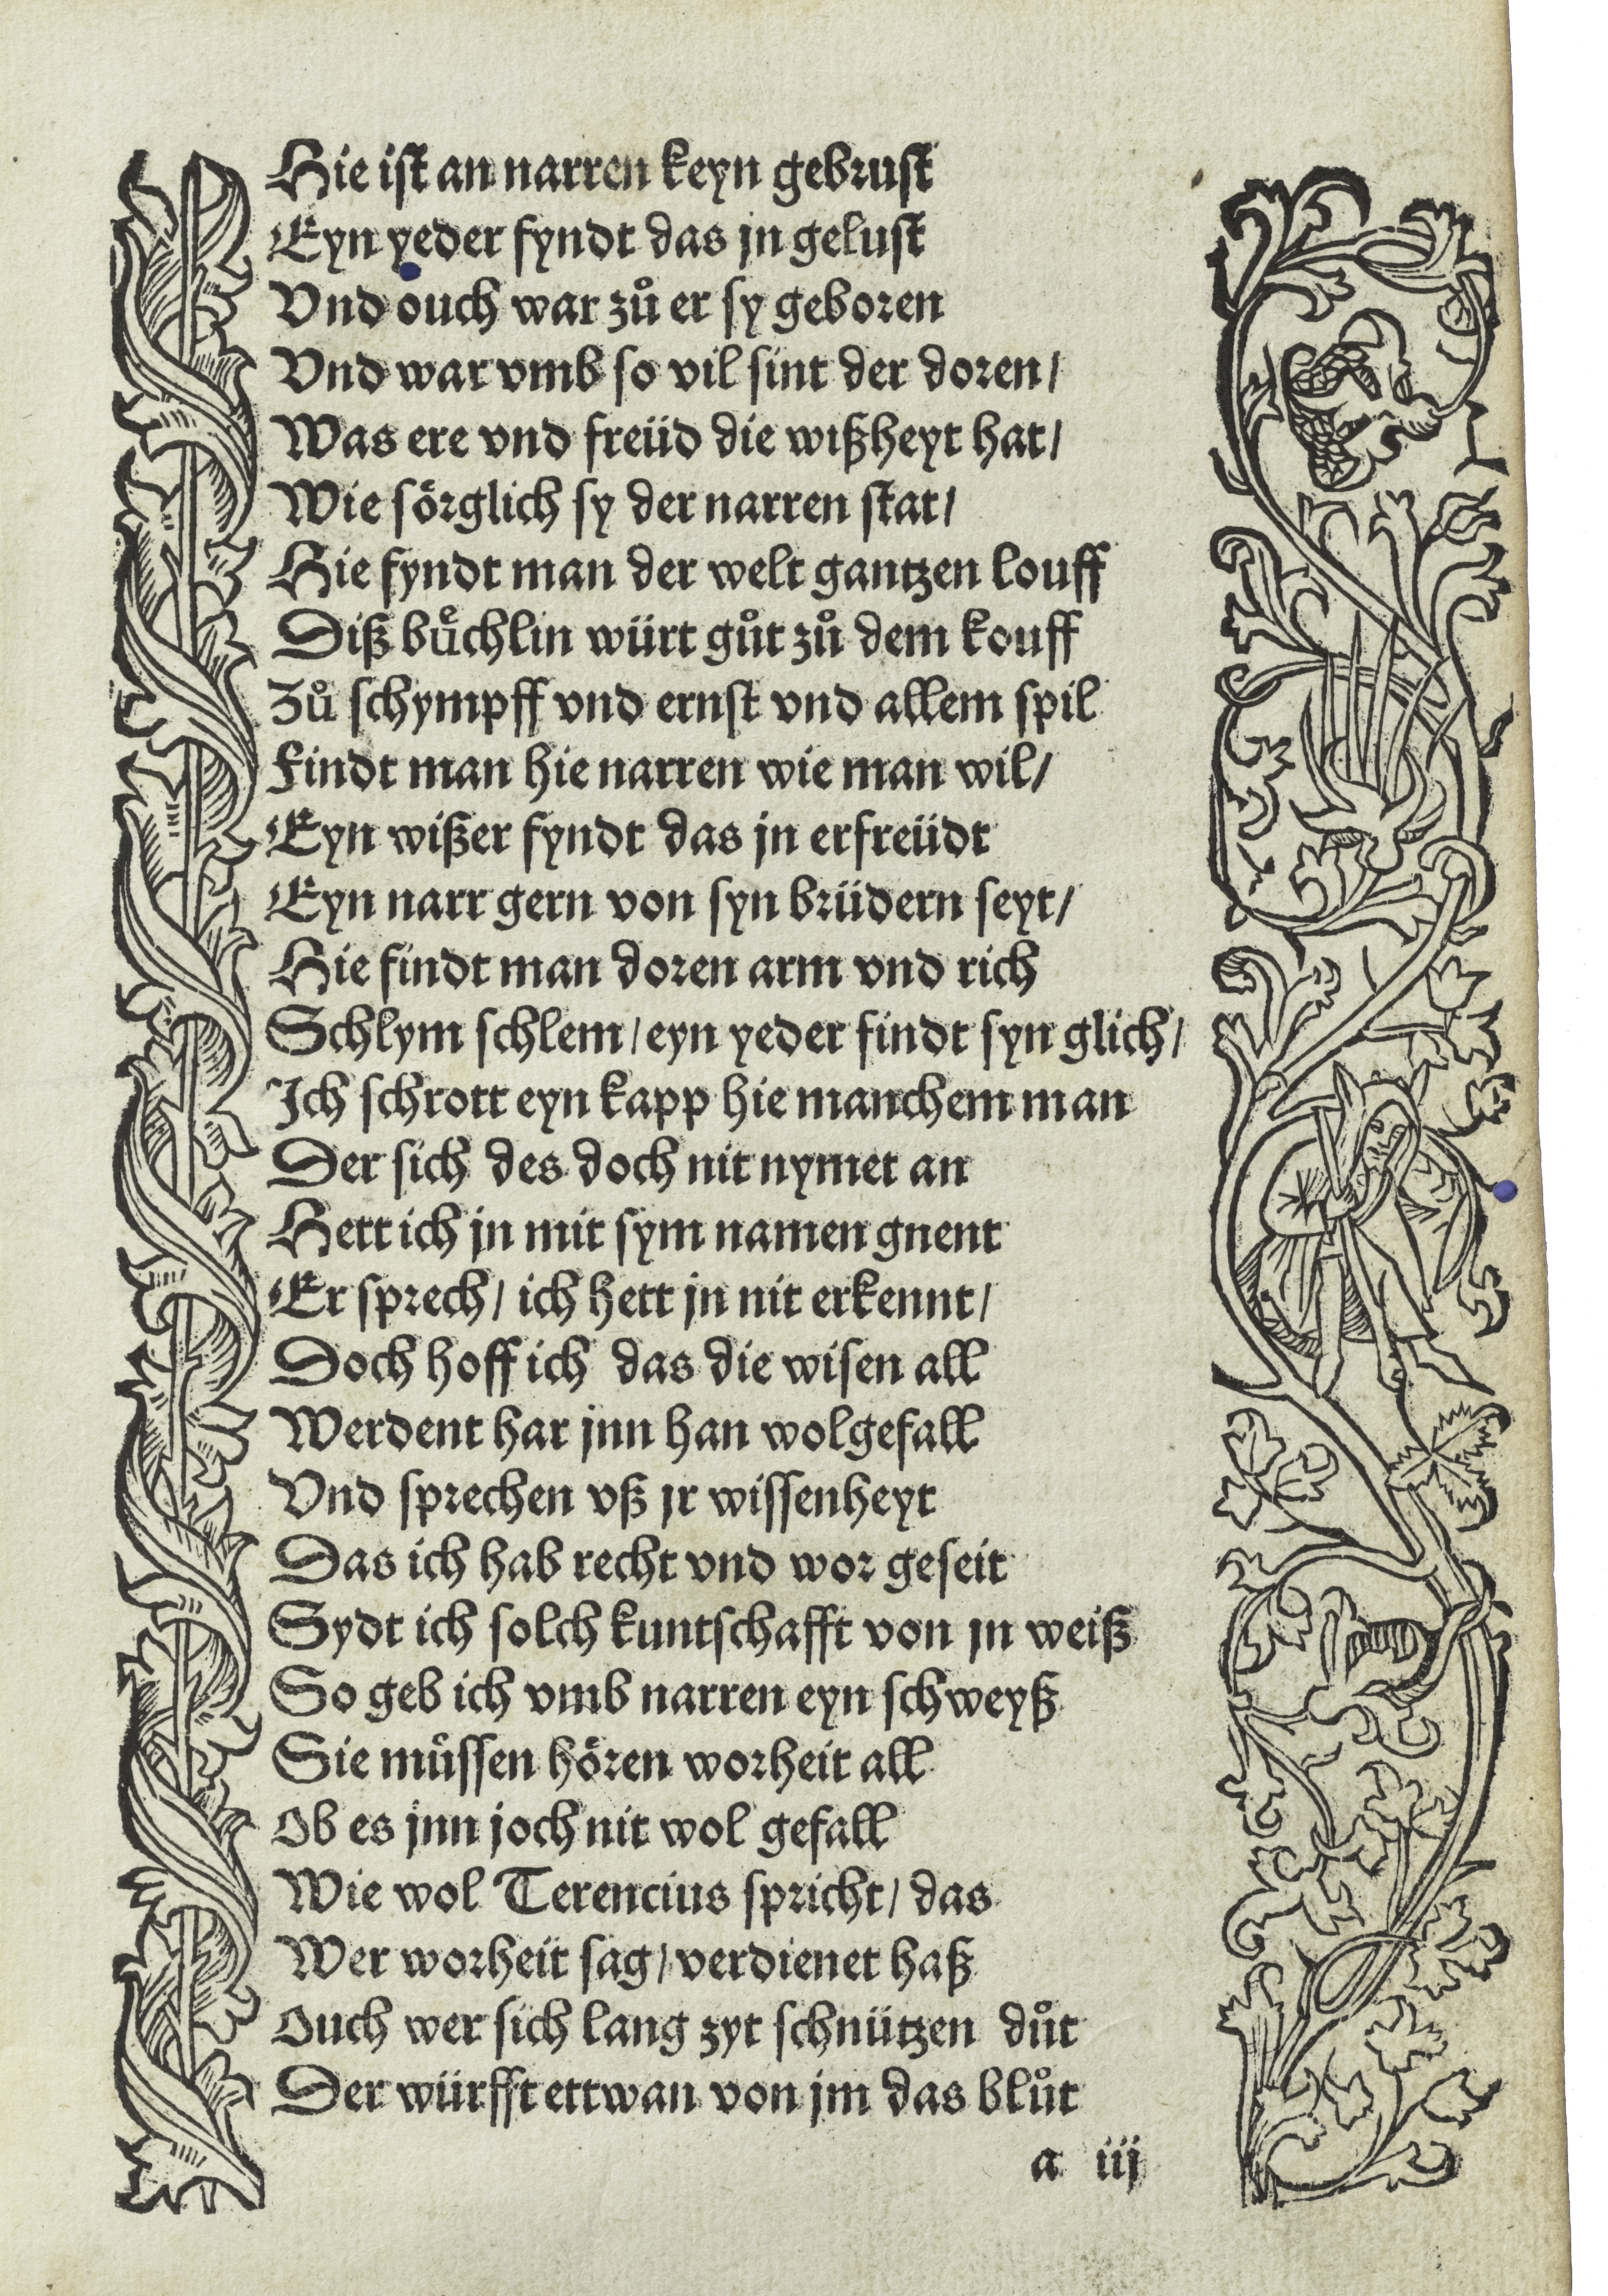 Hie ist an narren keyn gebrust
Eyn yeder fyndt das jn gelust
Vnd ouch war zů er sy geboren
Vnd war vmb so vil sint der doren/
Was ere vnd freüd die wißheyt hat/
Wie sörglich sy der narren stat/
Hie fyndt man der welt gantzen louff
Diß bůchlin würt gůt zů dem kouff
Zů schympff vnd ernst vnd allem spil
Findt man hie narren wie man wil/
Eyn wißer fyndt das jn erfreüdt
Eyn narr gern von syn brüdern seyt/
Hie findt man doren arm vnd rich
Schlym schlem/ eyn yeder findt syn glich/
Ich schrott eyn kapp hie manchem man
Der sich des doch nit nymet an
Hett ich jn mit sym namen gnent
Er sprech/ ich hett jn nit erkennt/
Doch hoff ich das die wisen all
Werdent har jnn han wolgefall
Vnd sprechen vß jr wissenheyt
Das ich hab recht vnd wor geseit
Sydt ich solch kuntschafft von jn weiß
So geb ich vmb narren eyn schweyß
Sie můssen hören worheit all
Ob es jnn joch nit wol gefall
Wie wol Terencius spricht/ das
Wer worheit sag/ verdienet haß
Ouch wer sich lang zyt schnützen důt
Der würfft ettwan von jm das blůt
a iij